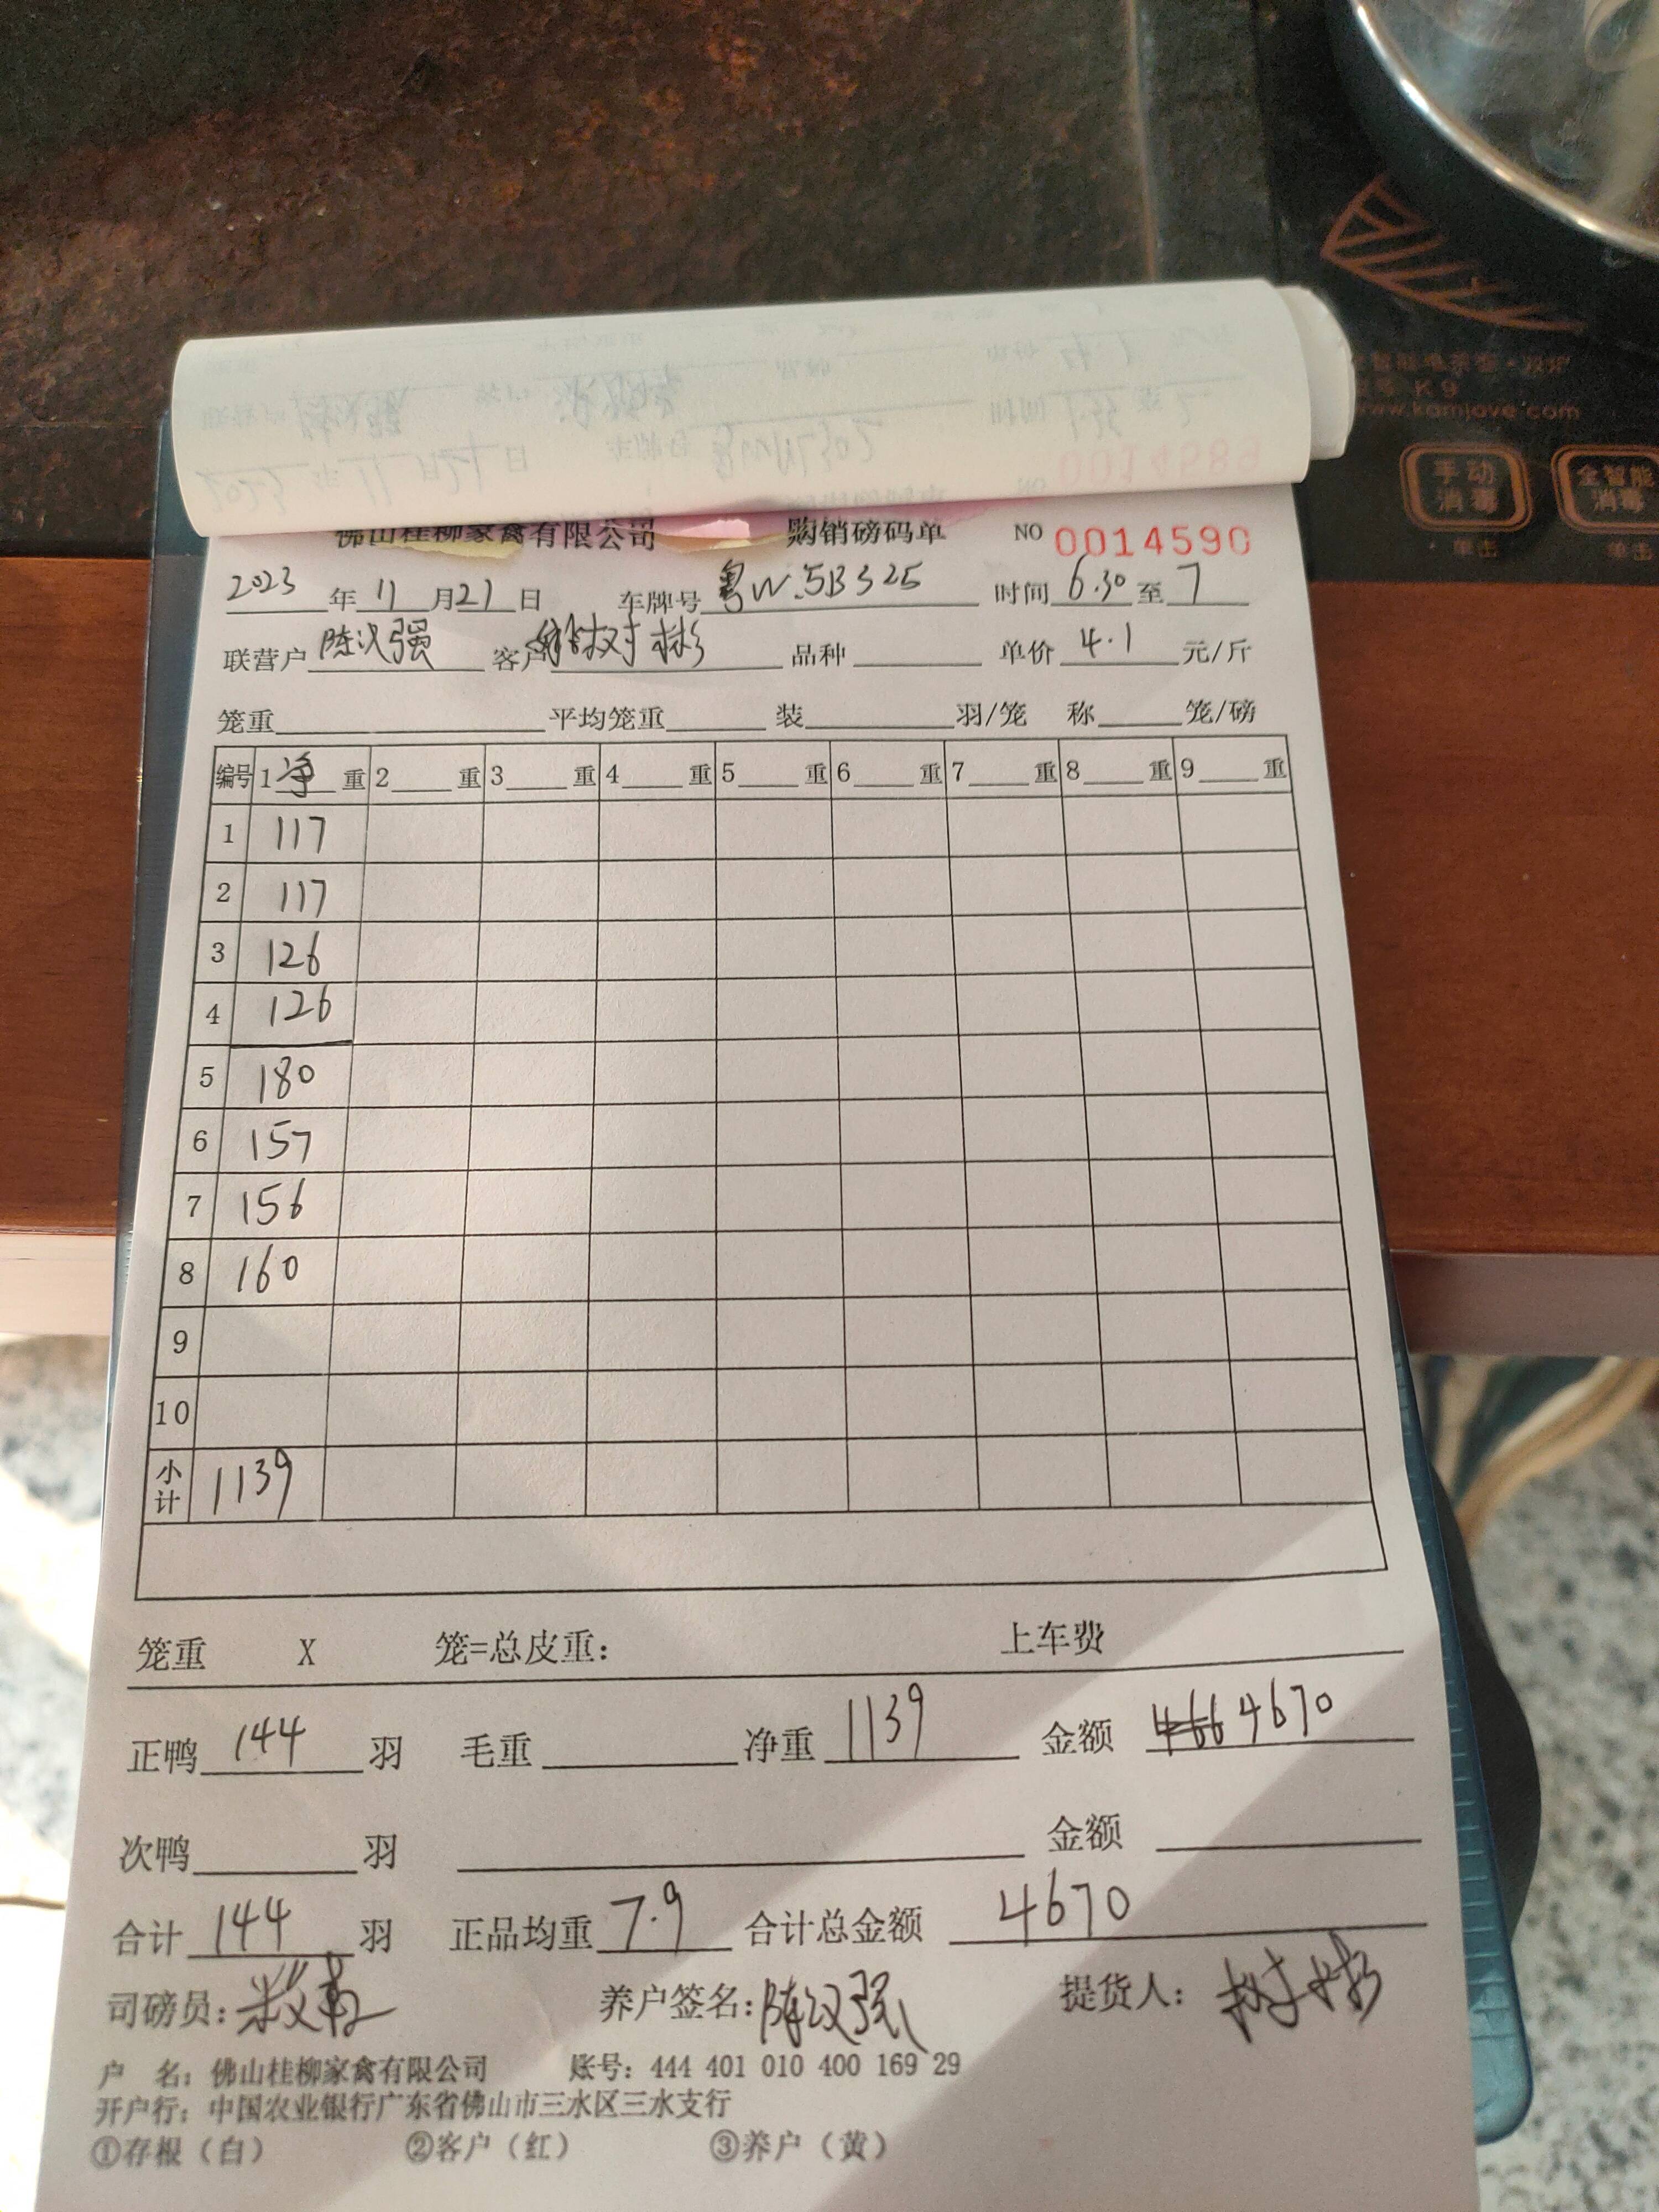 手动消毒
全智能消毒
单击
单击
www.kamjove.com
佛山桂柳家禽有限公司 购销磅码单 NO 0014590
2023年11月21日 车牌号粤W.5B325 时间6.30至7
联营户陈汉强 客户树彬 品种 单价4.1元/斤
笼重 平均笼重 装 羽/笼 称 笼/磅
编号 1净重 2 重 3 重 4 重 5 重 6 重 7 重 8 重 9 重
1 117
2 117
3 126
4 126
5 180
6 157
7 156
8 160
9
10
小计 1139
笼重 X 笼=总皮重: 上车费
正鸭144羽 毛重 净重1139 金额466 4670
次鸭 羽 金额
合计144羽 正品均重7.9 合计总金额4670
司磅员: 养户签名:陈汉强 提货人:树彬
户 名:佛山桂柳家禽有限公司 账号:444 401 010 400 169 29
开户行:中国农业银行广东省佛山市三水区三水支行
①存根(白) ②客户(红) ③养户(黄)